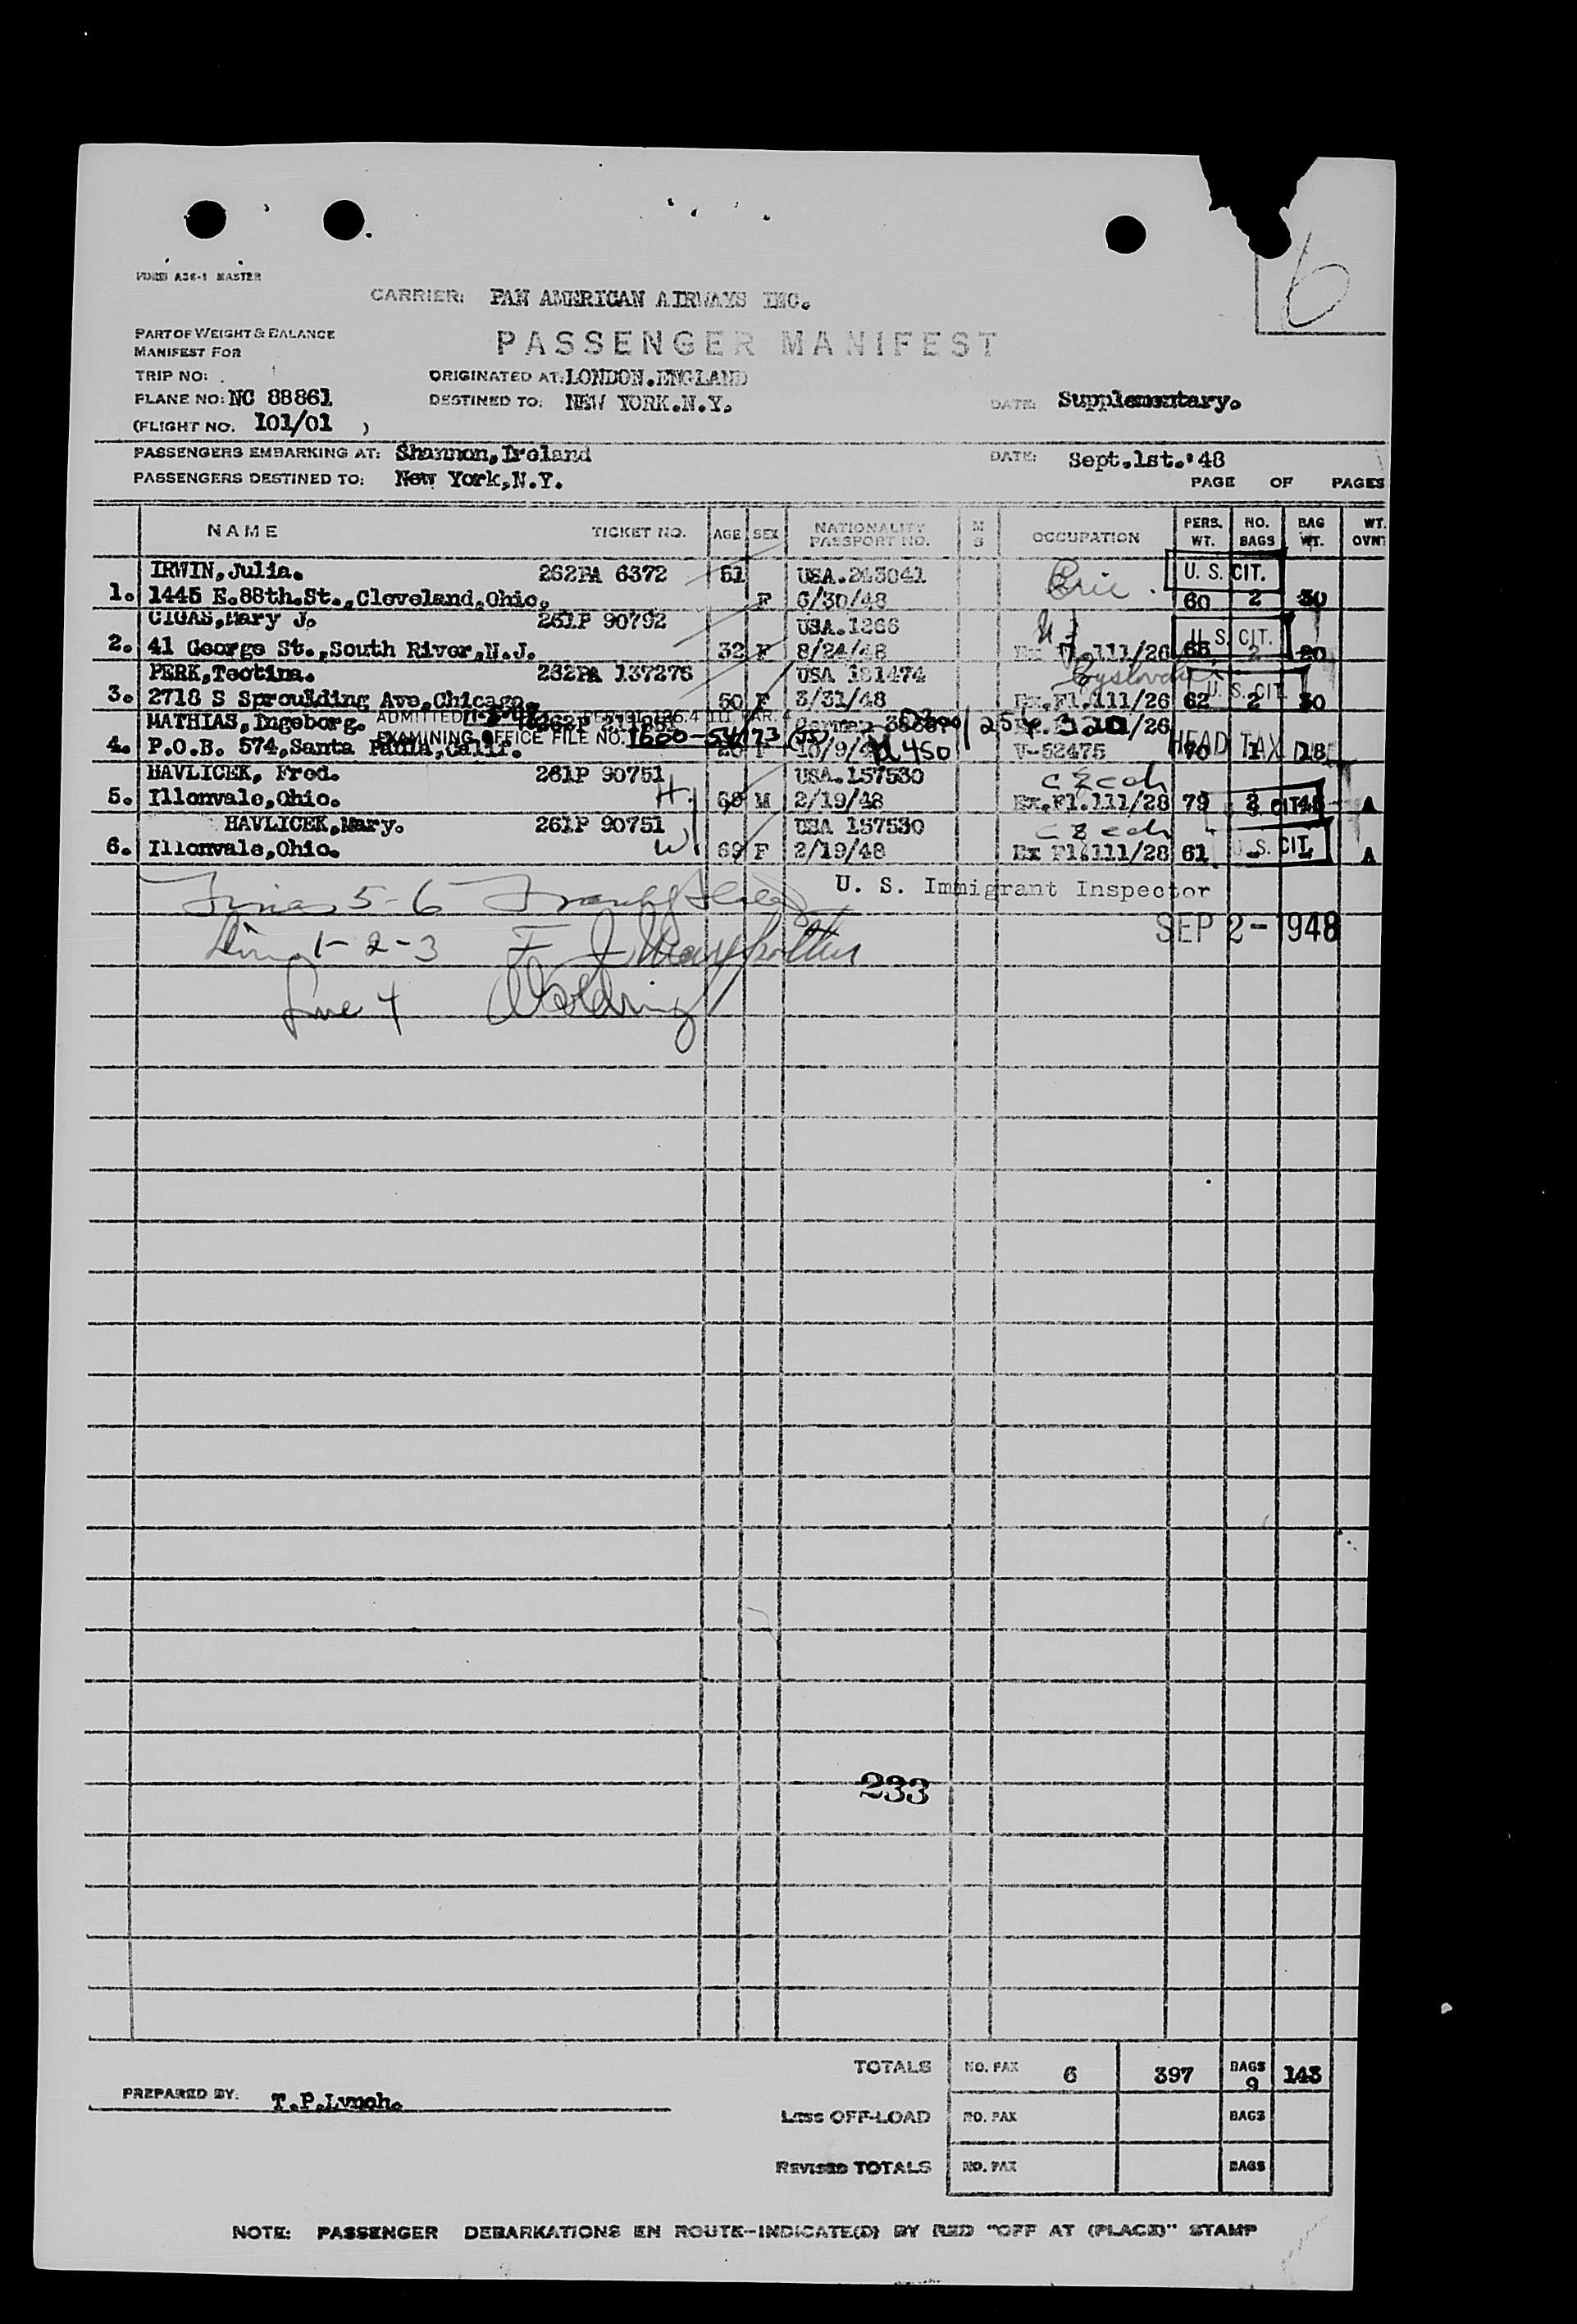 6
FORM A36-1 MASTER
CARRIER: PAN AMERICAN AIRWAYS INC.
PART OF WEIGHT & BALANCE
MANIFEST FOR
PASSENGER MANIFEST
TRIP NO:
ORIGINATED AT: LONDON.ENGLAND
PLANE NO: NC 88861
DESTINED TO: NEW YORK.N.Y.
DATE: Supplementary.
(FLIGHT NO. 101/01 )
PASSENGERS EMBARKING AT: Shannon,Ireland
DATE: Sept.1st.'48
PASSENGERS DESTINED TO: New York,N.Y.
PAGE OF PAGES
NAME TICKET NO. AGE SEX NATIONALITY PASSPORT NO. M S OCCUPATION PERS. WT. NO. BAGS BAG WT. WT. OVN
IRWIN,Julia. 262PA 6372 51 USA.245041 U. S. CIT.
1. 1445 E.88th.St.,Cleveland,Ohio. F 6/30/48 60 2 30
CIGAS,Mary J. 261P 90792 USA.1266 U. S. CIT.
2. 41 George St.,South River,N.J. 32 F 8/24/48 111/26 65 2 20
PERK,Teotina. 262PA 137276 USA 181474 U. S. CIT.
3. 2718 S Sproulding Ave,Chicago. 50 F 3/31/48 Ex.Fl.111/26 62 2 30
MATHIAS,Ingeborg. ADMITTED German
EXAMINING OFFICE FILE NO. 1600-54173
4. P.O.B. 574,Santa Paula,Calif. V-52475 70 1 18
HEAD TAX
HAVLICEK, Fred. 261P 90751 USA.157530 Czech
5. Illonvale,Ohio. H. 69 M 2/19/48 Ex.Fl.111/28 79 2 45 A
HAVLICEK,Mary. 261P 90751 USA 157530 Czech
6. Illonvale,Ohio. W 69 F 2/19/48 Ex Fl.111/28 61 U. S. CIT. A
Lines 5-6
U. S. Immigrant Inspector
SEP 2 - 1948
Line 1-2-3
Line 4
233
TOTALS NO. PAX 6 397 BAGS 9 143
PREPARED BY. T.P.Lynch.
Less OFF-LOAD NO. PAX BAGS
REVISED TOTALS NO. PAX BAGS
NOTE: PASSENGER DEBARKATIONS EN ROUTE-INDICATE(D) BY RED "OFF AT (PLACE)" STAMP